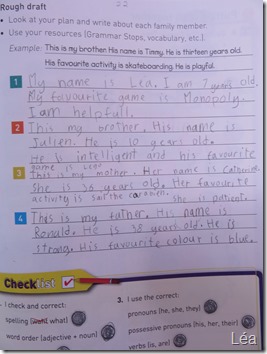 Rough draft
22
• Look at your plan and write about each family member.
• Use your resources (Grammar Stops, vocabulary, etc.).
Example: This is my brother. His name is Timmy. He is thirteen years old.
His favourite activity is skateboarding. He is playful.
1 My name is Lea. I am 7 years old.
My favourite game is Monopoly.
I am helpfull.
2 This my brother. His name is
Julien. He is 10 years old.
He is intelligent and his favourite
game is
3 This is my mother. Her name is Catherine.
She is 36 years old. Her favourite
activity is She is patient.
4 This is my father. His name is
Ronald. He is 38 years old. He is
strong. His favourite colour is blue.
Checklist
I check and correct:
spelling (waht what)
word order (adjective + noun)
3. I use the correct:
pronouns (he, she, they)
possessive pronouns (his, her, their)
verbs (is, are)
Léa